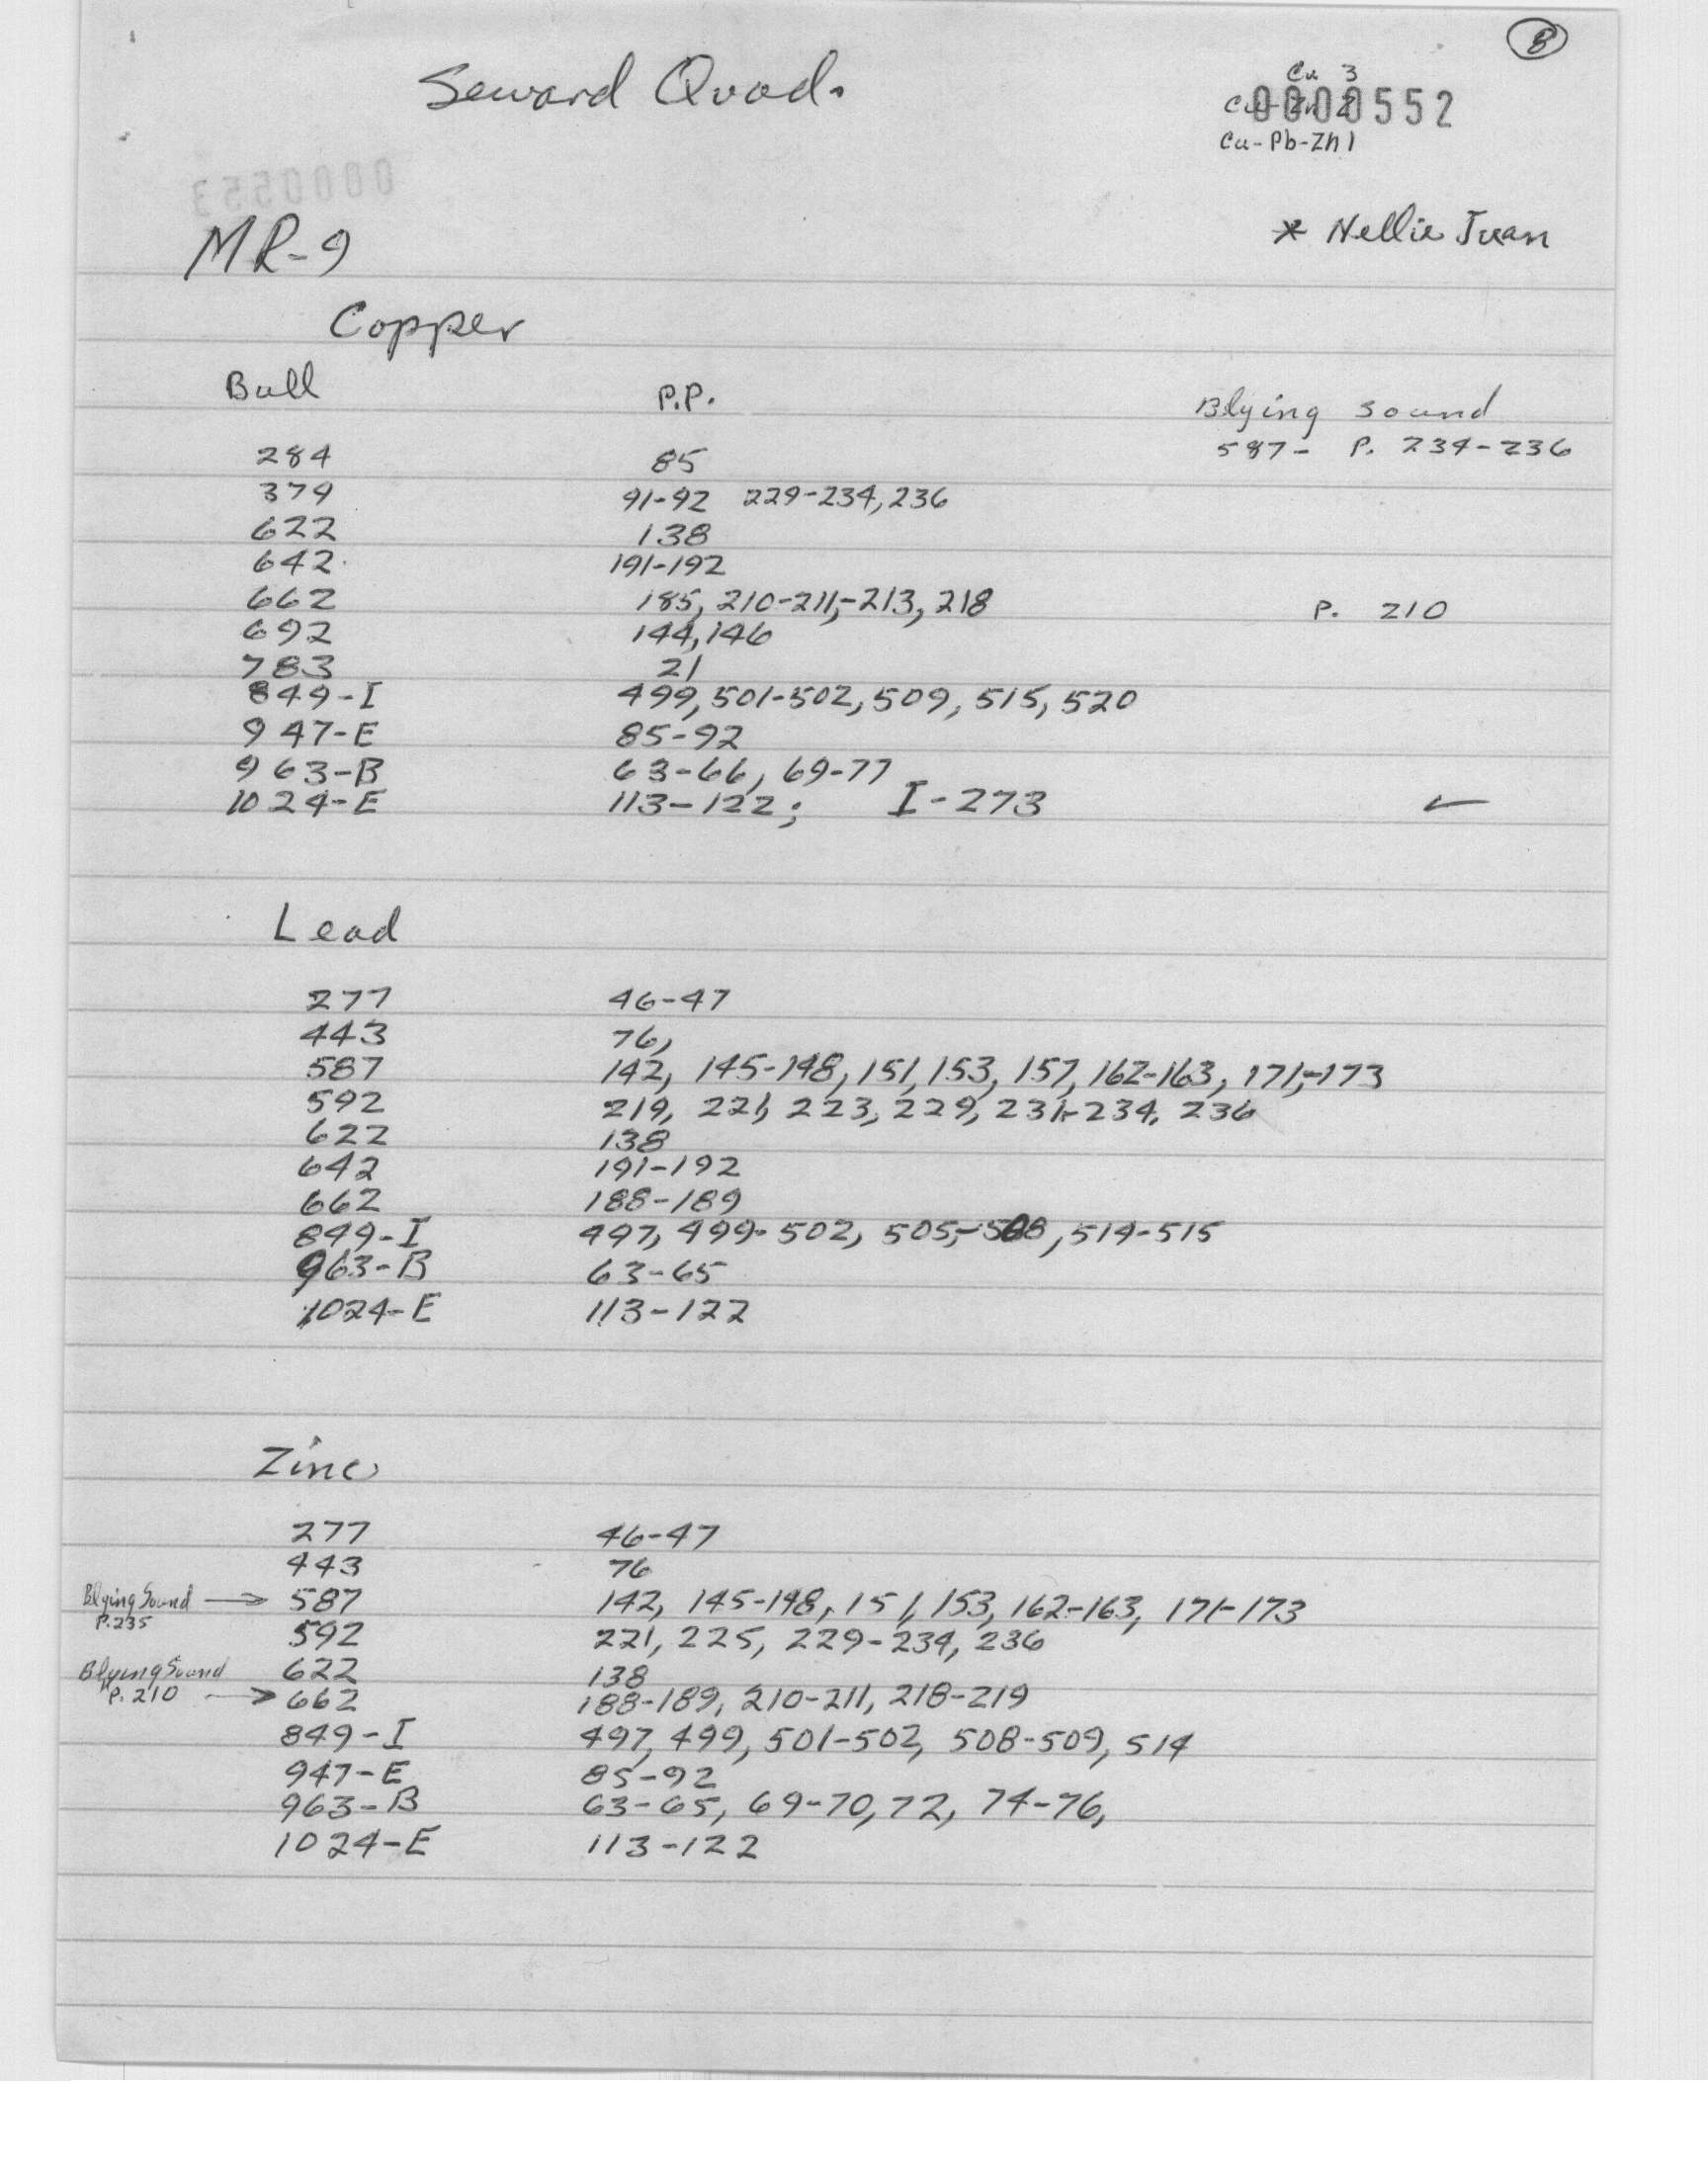 8
Seward Quad.
Cu 3
0000552
Cu-Pb-Zn 1
0000553
* Nellie Juan
MR-9
Copper
Bull P.P. Blying Sound
587- P. 234-236
284 85
379 91-92 229-234, 236
622 138
642 191-192
662 185, 210-211,-213, 218 P. 210
692 144, 146
783 21
849-I 499, 501-502, 509, 515, 520
947-E 85-92
963-B 63-66, 69-77
1024-E 113-122; I-273 ✓
Lead
277 46-47
443 76,
587 142, 145-148, 151, 153, 157, 162-163, 171,-173
592 219, 221, 223, 229, 231-234, 236
622 138
642 191-192
662 188-189
849-I 497, 499-502, 505,-508, 514-515
963-B 63-65
1024-E 113-122
Zinc
277 46-47
443 76
Blying Sound → 587 142, 145-148, 151, 153, 162-163, 171-173
P.235
592 221, 225, 229-234, 236
Blying Sound 622 138
P. 210 → 662 188-189, 210-211, 218-219
849-I 497, 499, 501-502, 508-509, 514
947-E 85-92
963-B 63-65, 69-70, 72, 74-76,
1024-E 113-122